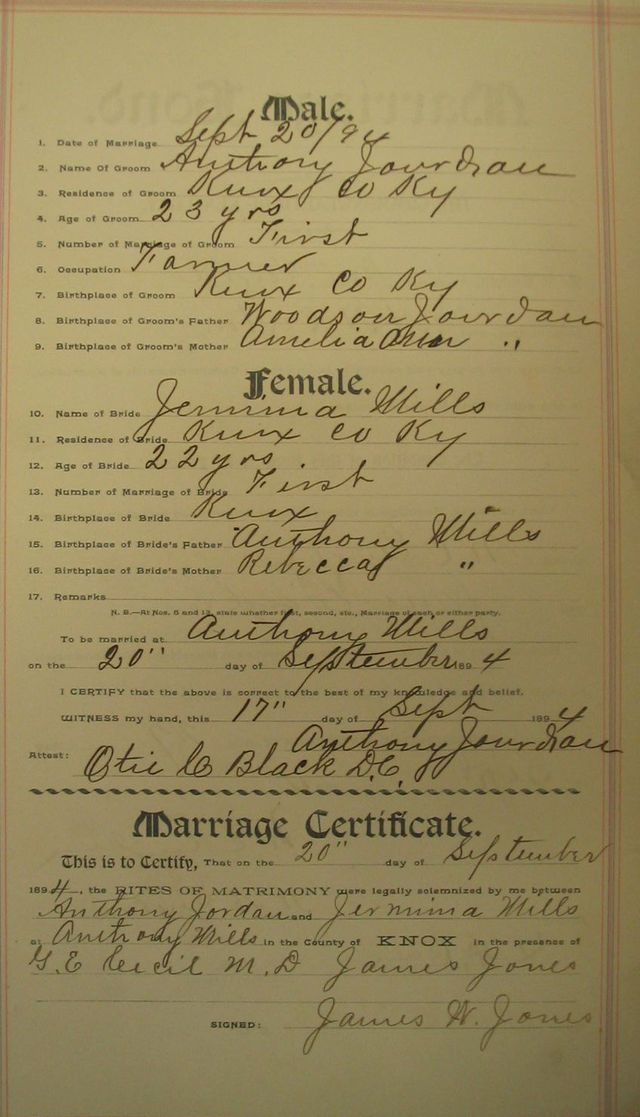 Male.
1. Date of Marriage Sept 20/94
2. Name Of Groom Anthony Jourdan
3. Residence of Groom Knox Co Ky
4. Age of Groom 23 yrs
5. Number of Marriage of Groom First
6. Occupation Farmer
7. Birthplace of Groom Knox Co Ky
8. Birthplace of Groom's Father Woodson Jourdan
9. Birthplace of Groom's Mother Amelia Ann "
Female.
10. Name of Bride Jemima Mills
11. Residence of Bride Knox Co Ky
12. Age of Bride 22 yrs
13. Number of Marriage of Bride First
14. Birthplace of Bride Knox
15. Birthplace of Bride's Father Anthony Mills
16. Birthplace of Bride's Mother Rebecca "
17. Remarks
N. B.—At Nos. 5 and 13, state whether first, second, etc., Marriage of each or either party.
To be married at Anthony Mills
on the 20" day of September 1894
I CERTIFY that the above is correct to the best of my knowledge and belief.
WITNESS my hand, this 17" day of Sept 1894
Anthony Jourdan
Attest: Otie C Black D.C.
Marriage Certificate.
This is to Certify, That on the 20" day of September
1894, the RITES OF MATRIMONY were legally solemnized by me between
Anthony Jordan and Jermima Mills
at Anthony Mills in the County of KNOX in the presence of
G. E Cecil M. D James Jones
SIGNED: James W. Jones